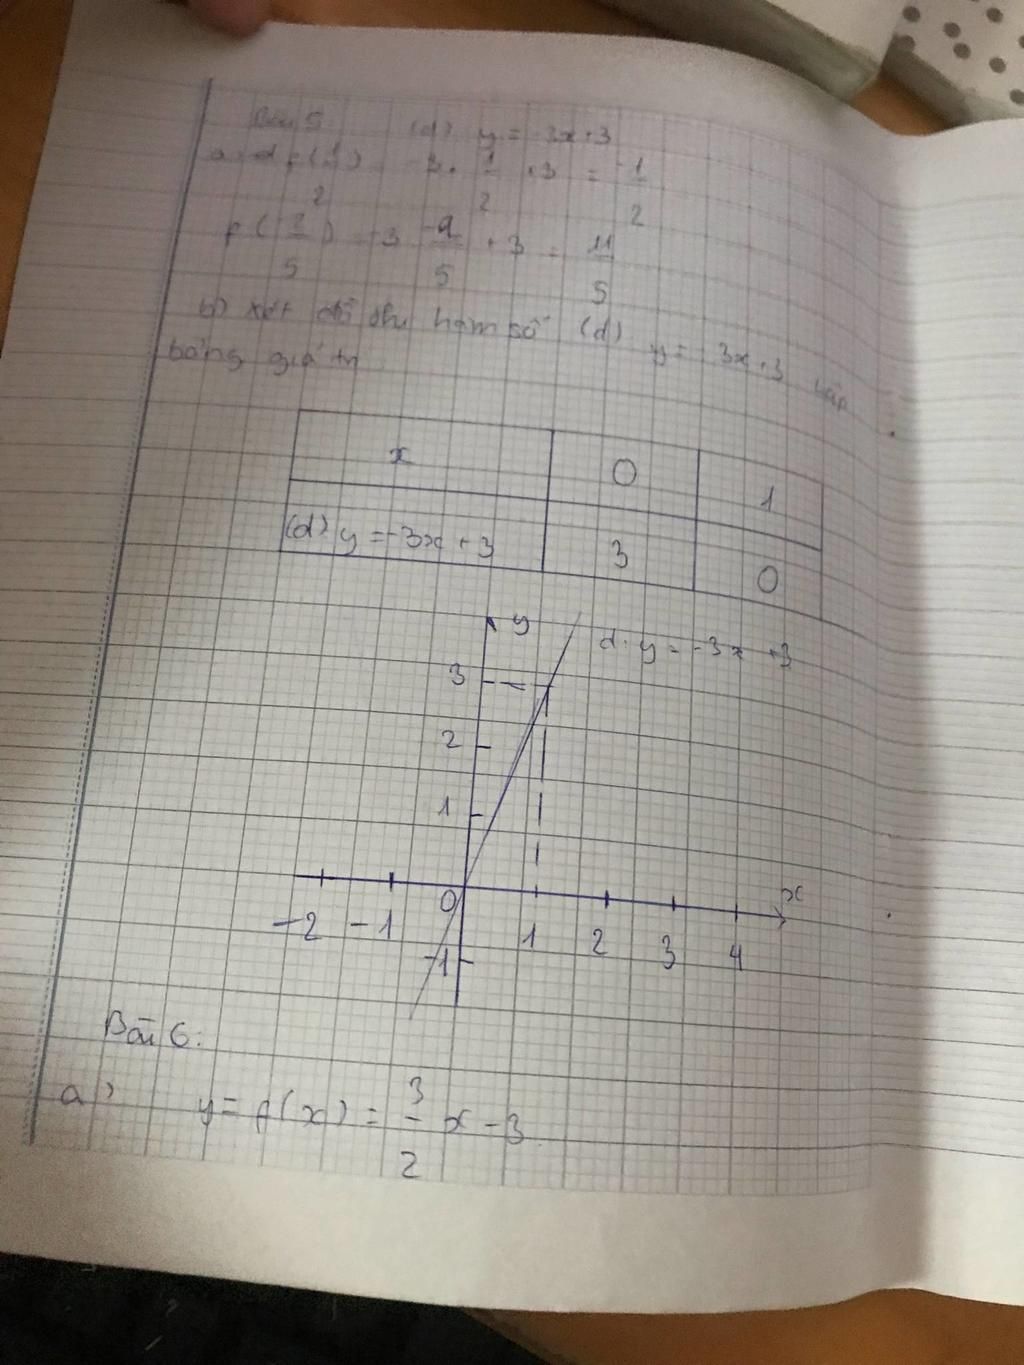 Bài 5: (d) y = -3x+3
a) f(1/2) = -3. 1/2 +3 = -1/2
-3 -2/5 + 3 = 11/5
b) xét đồ thị hàm số (d) y = -3x+3
bảng giá trị
x 0 1
(d) y = -3x + 3 3 0
y
d: y = -3x +3
3
2
1
0
x
-2 -1 1 2 3 4
-1
Bài 6:
a) y = f(x) = 3/2 x - 3